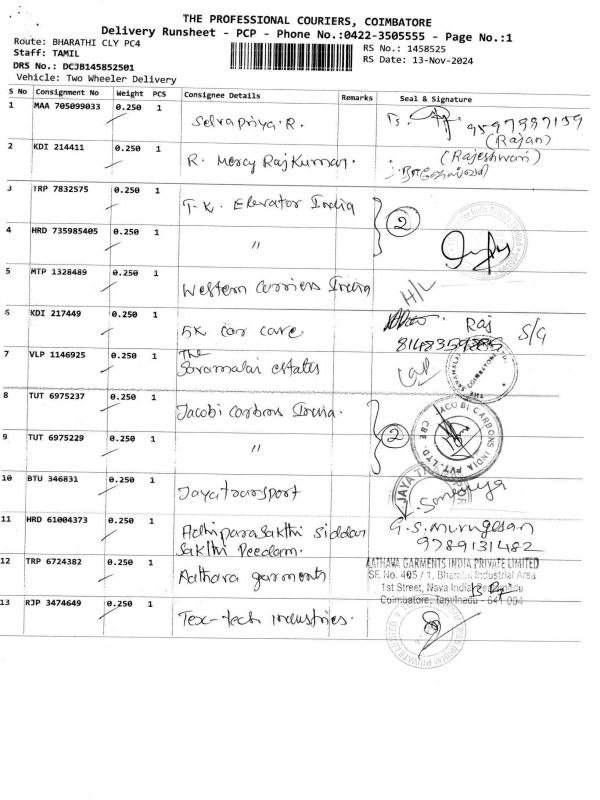 THE PROFESSIONAL COURIERS, COIMBATORE
Delivery Runsheet - PCP - Phone No.:0422-3505555 - Page No.:1
Route: BHARATHI CLY PC4
RS No.: 1458525
Staff: TAMIL
RS Date: 13-Nov-2024
DRS No.: DCJB145852501
Vehicle: Two Wheeler Delivery
S No Consignment No Weight PCS Consignee Details Remarks Seal & Signature
1 MAA 705099033 0.250 1 Selvapriya.R. 9597997159 (Rajan)
2 KDI 214411 0.250 1 R. Mercy Rajkumar. (Rajeshwari)
3 TRP 7832575 0.250 1 T.K. Elevator India 2
4 HRD 735985405 0.250 1 "
5 MTP 1328489 0.250 1 Western Carriers India H/L
6 KDI 217449 0.250 1 5K car care Raj S/G
7 VLP 1146925 0.250 1 The estates
8 TUT 6975237 0.250 1 Jacobi Carbons India. JACOBI CARBONS INDIA PVT. LTD. CBE
9 TUT 6975229 0.250 1 " 2
10 BTU 346831 0.250 1 Jaya transport
11 HRD 61004373 0.250 1 Adhiparasakthi siddar sakthi Peedam. G.S. murugesan
9789131482
12 TRP 6724382 0.250 1 Aathava garments AATHAVA GARMENTS INDIA PRIVATE LIMITED
SF. No. 405 / 1, Bharathi Industrial Area
1st Street, Nava India
Coimbatore, Tamilnadu - 641 004
13 RJP 3474649 0.250 1 Tex-tech industries.